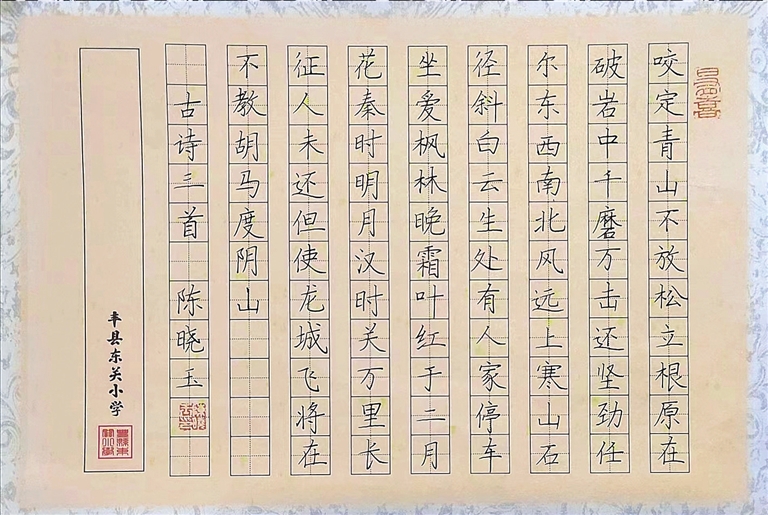 咬定青山不放松立根原在
破岩中千磨万击还坚劲任
尔东西南北风远上寒山石
径斜白云生处有人家停车
坐爱枫林晚霜叶红于二月
花秦时明月汉时关万里长
征人未还但使龙城飞将在
不教胡马度阴山
古诗三首 陈晓玉
丰县东关小学